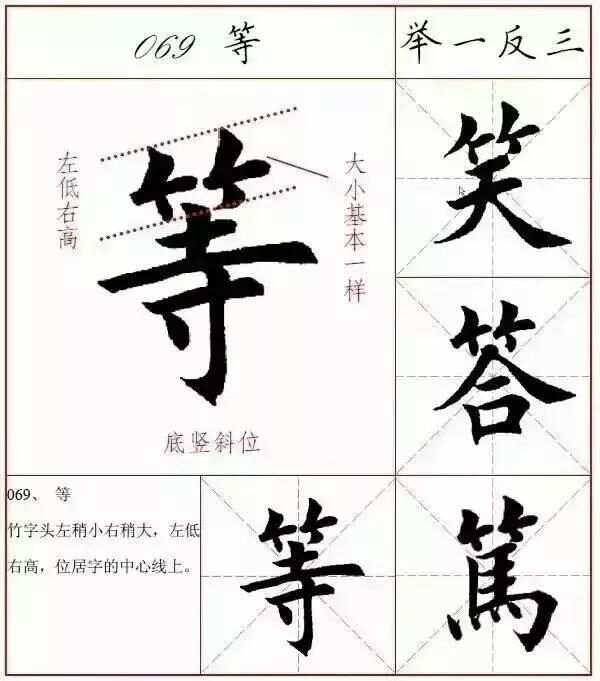 069 等
举一反三
左低右高
等
大小基本一样
底竖斜位
笑
答
069、 等
竹字头左稍小右稍大，左低
右高，位居字的中心线上。
等
篤